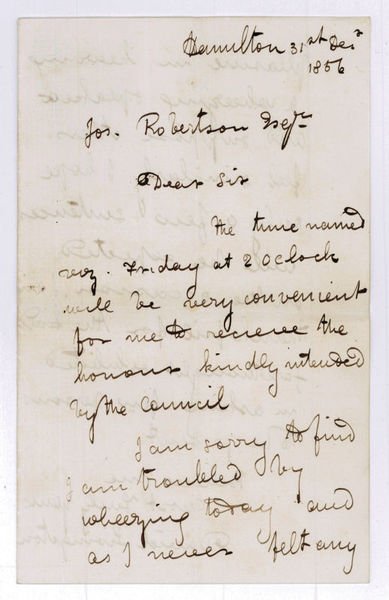 Hamilton 31st Decr
1856
Jos. Robertson Esqr
Dear Sir
the time named
viz. Friday at 2 oclock
will be very convenient
for me to recieve the
honour kindly intended
by the Council
I am sorry to find
I am troubled by
wheezing today and
as I never felt any